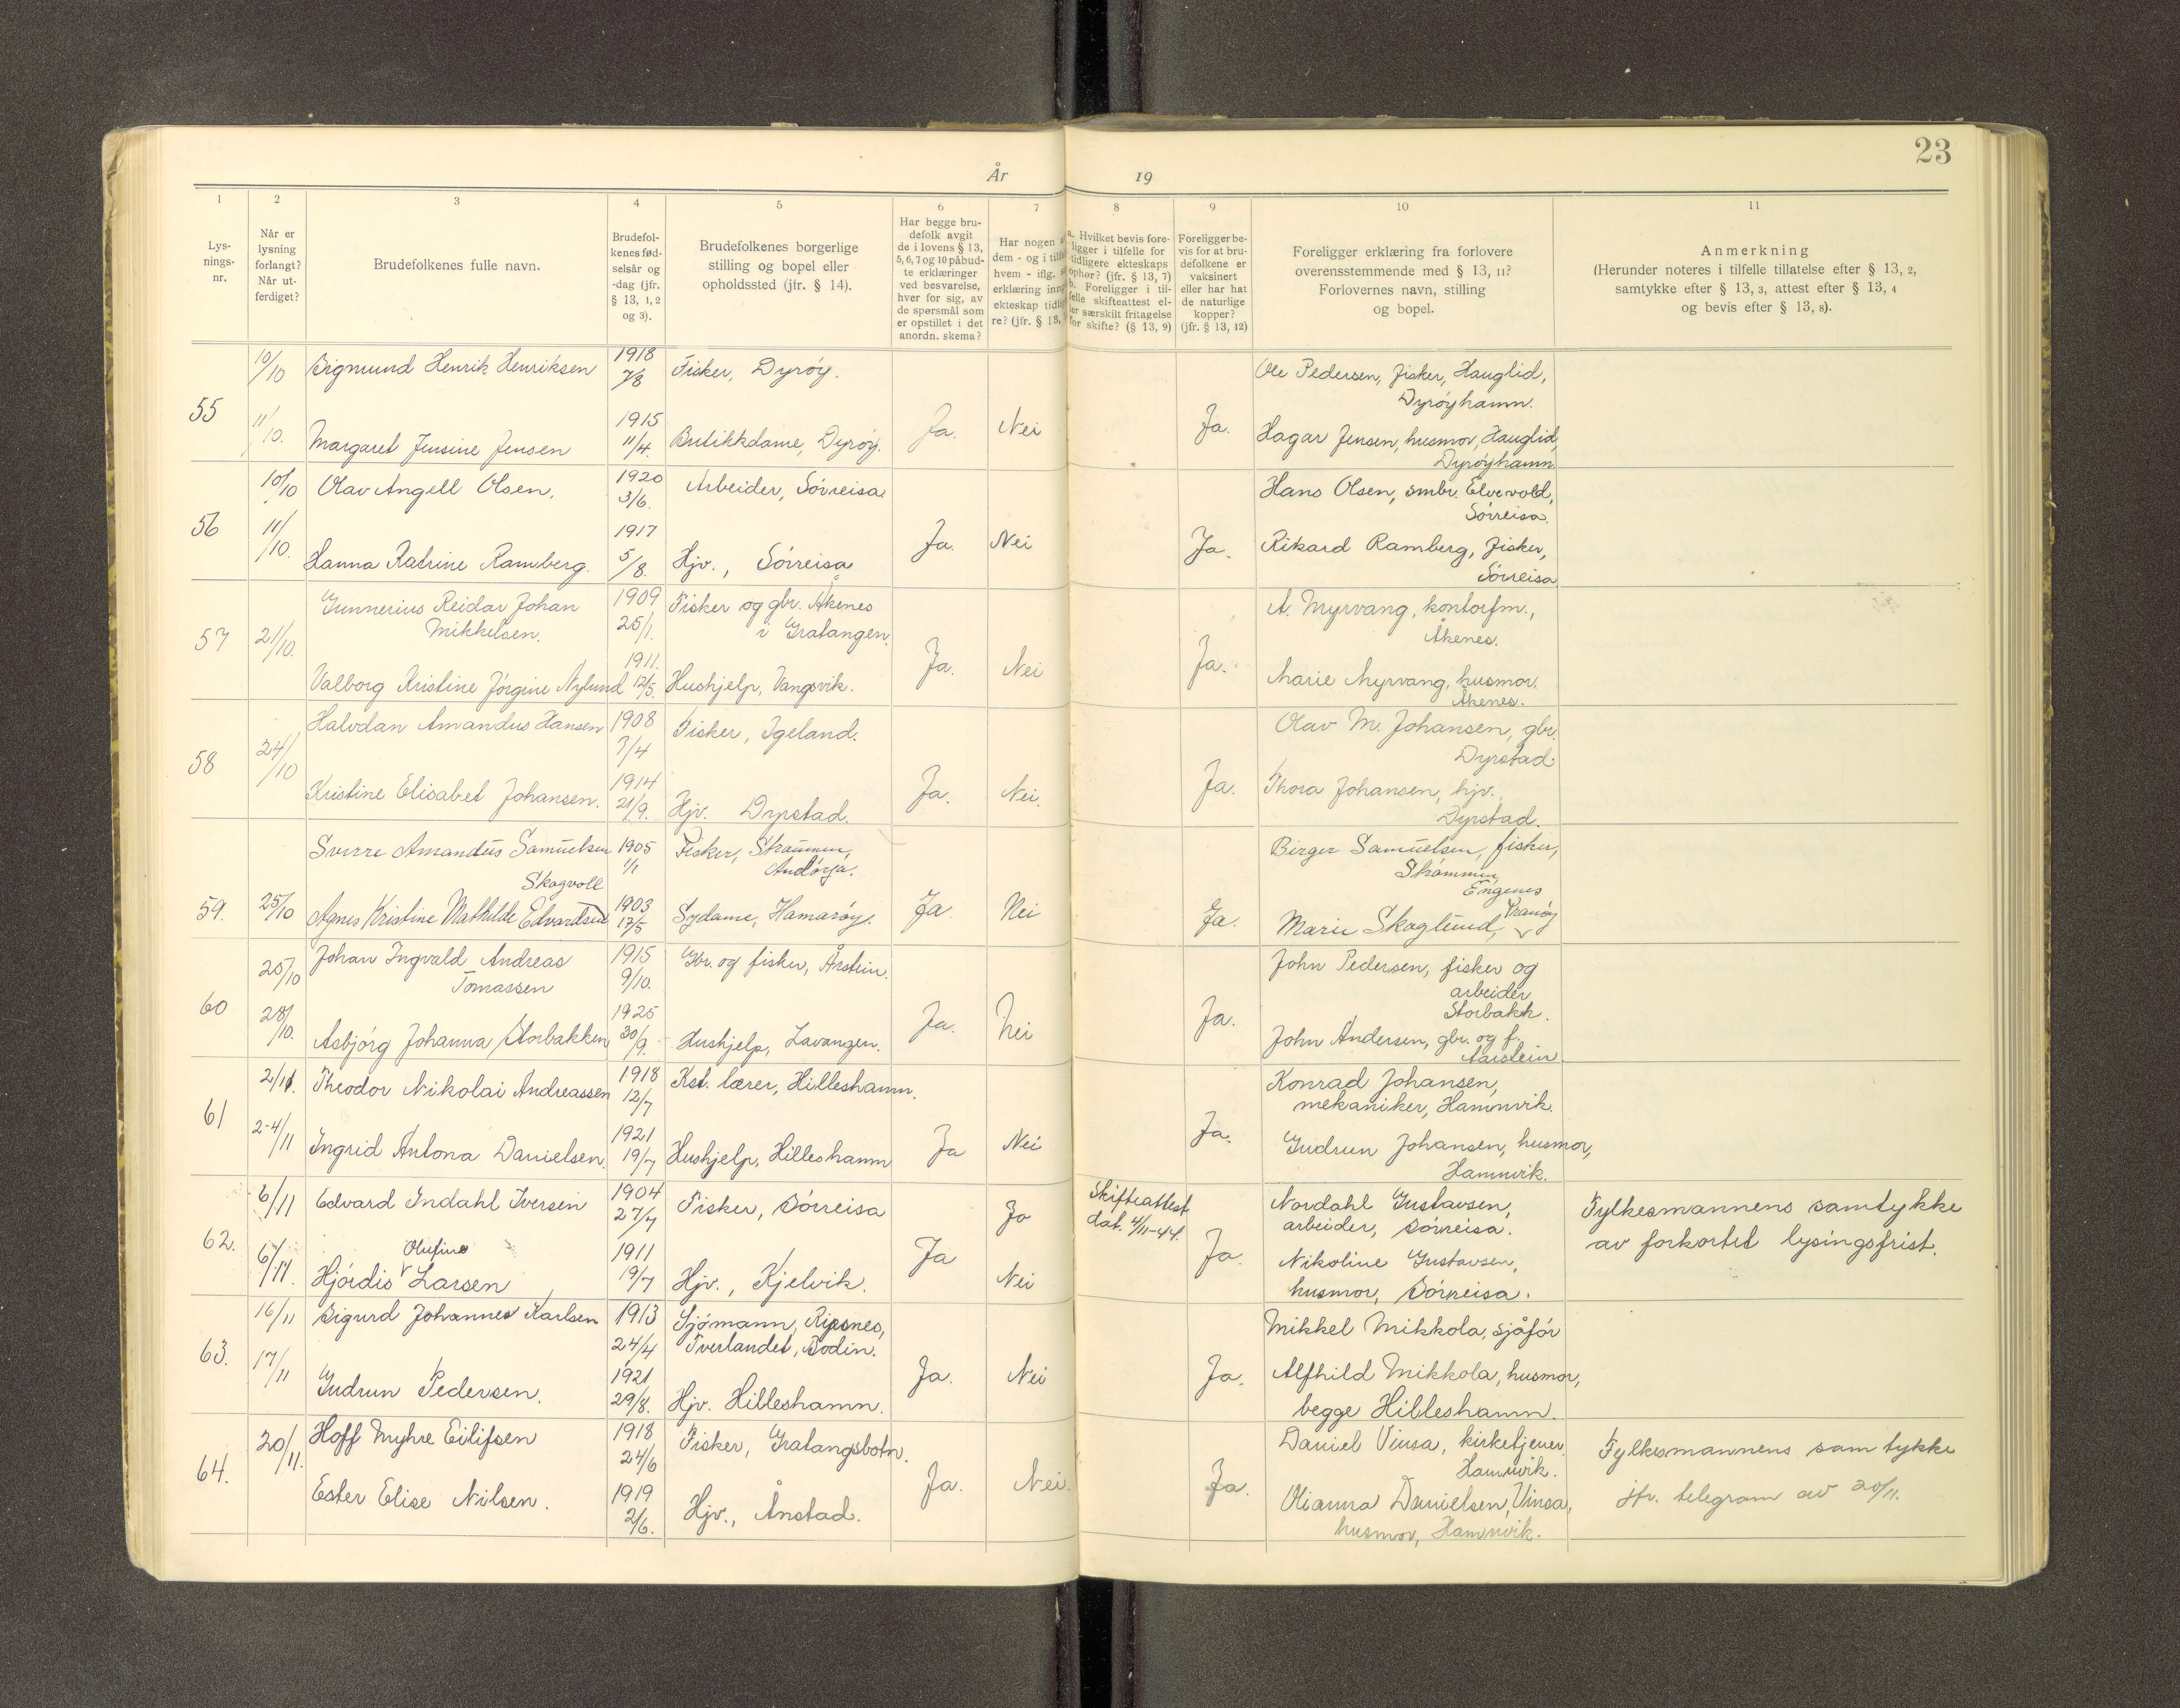 23
År 19
1 2 3 4 5 6 7 8 9 10 11
Lys-
nings-
nr.
Når er
lysning
forlangt?
Når ut-
ferdiget?
Brudefolkenes fulle navn.
Brudefol-
kenes fød-
selsår og
-dag (jfr.
§ 13, 1, 2
og 3).
Brudefolkenes borgerlige
stilling og bopel eller
opholdssted (jfr. § 14).
Har begge bru-
defolk avgit
de i lovens § 13,
5, 6, 7 og 10 påbud-
te erklæringer
ved besvarelse,
hver for sig, av
de spørsmål som
er opstillet i det
anordn. skema?
Har nogen
dem - og i tilf
hvem - iflg.
erklæring inng
ekteskap tidlig
re? (jfr. § 13,
a. Hvilket bevis fore-
ligger i tilfelle for
tidligere ekteskaps
ophør? (jfr. § 13, 7)
b. Foreligger i til-
felle skifteattest el-
ler særskilt fritagelse
for skifte? (§ 13, 9)
Foreligger be-
vis for at bru-
defolkene er
vaksinert
eller har hat
de naturlige
kopper?
(jfr. § 13, 12)
Foreligger erklæring fra forlovere
overensstemmende med § 13, 11?
Forlovernes navn, stilling
og bopel.
Anmerkning
(Herunder noteres i tilfelle tillatelse efter § 13, 2,
samtykke efter § 13, 3, attest efter § 13, 4
og bevis efter § 13, 8).
55
10/10 Sigmund Henrik Henriksen 1918 7/8 Fisker, Dyrøy.
11/10. Margaret Jensine Jensen 1915 11/4. Butikkdame, Dyrøy.
Ja. Nei Ja.
Ole Pedersen, fisker, Hauglid,
Dyrøyhamn.
Hagar Jensen, husmor, Hauglid,
Dyrøyhamn.
56
10/10 Olav Angell Olsen, 1920 3/6. Arbeider, Sørreisa
11/10. Hanna Katrine Ramberg. 1917 5/8. Hjv., Sørreisa
Ja. Nei Ja.
Hans Olsen, smbr. Elvevold,
Sørreisa.
Rikard Ramberg, fisker,
Sørreisa
57 21/10.
Gunnerius Reidar Johan
Mikkelsen. 1909 25/1. Fisker og gbr. Åkenes
i Gratangen.
Valborg Kristine Jørgine Nylund 1911. 12/5. Hushjelp, Vangsvik.
Ja. Nei Ja.
A. Myrvang, kontorfm.,
Åkenes.
Marie Myrvang, husmor.
Åkenes.
58 24/10
Halvdan Amandus Hansen 1908 7/4 Fisker, Igeland.
Kristine Elisabet Johansen. 1914 21/9. Hjv. Dyrstad.
Ja. Nei. Ja.
Olav M. Johansen, gbr.
Dyrstad
Thora Johansen, hjv.
Dyrstad.
59. 25/10
Sverre Amandus Samuelsen 1905 1/1 Fisker, Straumen,
Andørja.
Skogvoll
Agnes Kristine Mathilde Edvardsen 1903 17/5 Sydame, Hamarøy.
Ja. Nei Ja.
Birger Samuelsen, fisker,
Strømmen,
Engenes
Marie Skoglund, Tranøy
60
25/10 Johan Ingvald Andreas
Tomassen 1915 9/10. Gbr. og fisker, Årstein.
28/10. Asbjørg Johanna Storbakken 1925 30/9. Hushjelp, Lavangen.
Ja. Nei Ja.
John Pedersen, fisker og
arbeider
Storbakk.
John Andersen, gbr. og f.
Aarstein.
61
2/11. Theodor Nikolai Andreassen 1918 12/7 Kst. lærer, Hilleshamn.
2-4/11 Ingrid Antona Danielsen. 1921 19/7 Hushjelp, Hilleshamn
Ja Nei Ja.
Konrad Johansen,
mekaniker, Hamnvik.
Gudrun Johansen, husmor,
Hamnvik.
62.
6/11 Edvard Indahl Iversen 1904 27/7 Fisker, Sørreisa
Olufine
6/11. Hjørdis Larsen 1911 19/7 Hjv., Kjelvik.
Ja Ja Nei
Skifteattest
dat. 4/11-44.
Ja.
Nordahl Gustavsen,
arbeider, Sørreisa.
Nikoline Gustavsen,
husmor, Sørreisa.
Fylkesmannens samtykke
av forkortet lysingsfrist.
63.
16/11 Sigurd Johannes Karlsen 1913 24/4 Sjømann, Ripsnes,
Tverlandet, Bodin.
17/11 Gudrun Pedersen. 1921 29/8. Hjv. Hilleshamn.
Ja. Nei Ja.
Mikkel Mikkola, sjåfør
Alfhild Mikkola, husmor,
begge Hilleshamn.
64. 20/11.
Hoff Myhre Eilifsen 1918 24/6 Fisker, Gratangsbotn.
Ester Elise Nilsen. 1919 2/6. Hjv., Ånstad.
Ja. Nei. Ja.
Daniel Vinsa, kirketjener
Hamnvik.
Olianna Danielsen, Vinsa,
husmor, Hamnvik.
Fylkesmannens samtykke
jfr. telegram av 20/11.